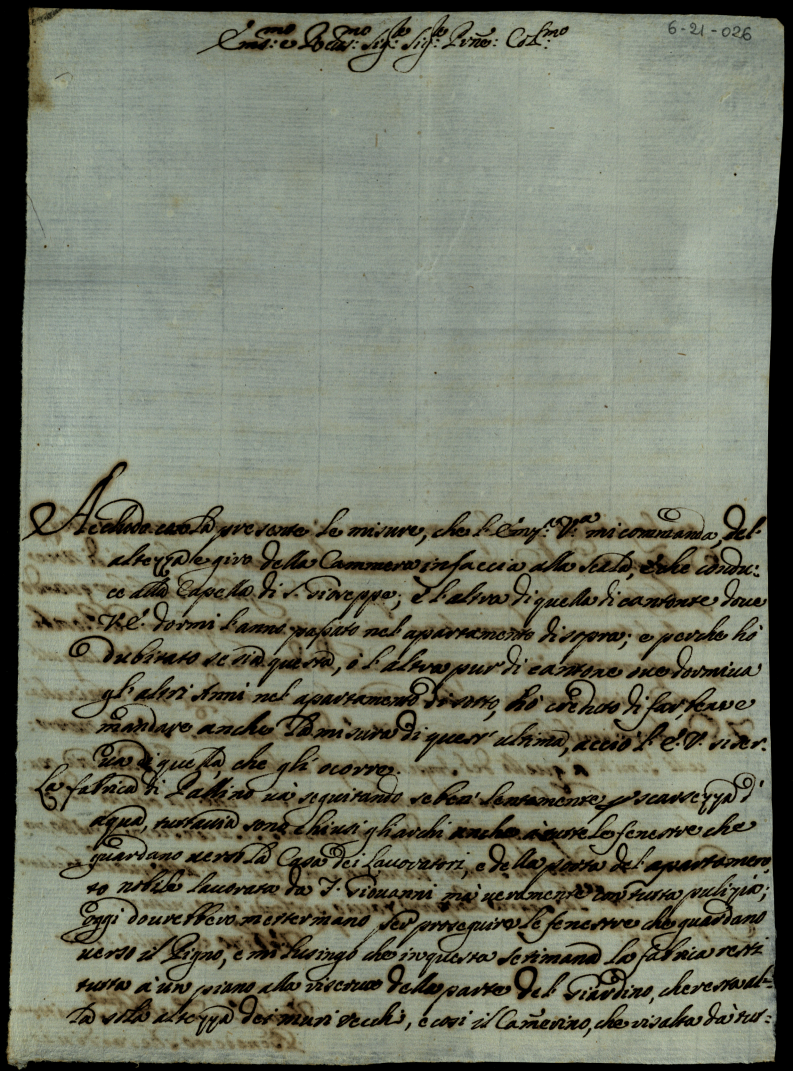 6-21-026
Emo: e Reuo: Sigre Sigre Prñe: Colmo
Acchiudo con la presente le misure, che l'Emza Va mi commanda, del
altezza e giro della Cammera in faccia alla Scala, che condu:
ce alla Capella di S. Gioseppe; e l'altra di quella di cantone doue
V.E. dormì l'anno passato nel apartamento di sopra; e perche hò
dubitato se sia questa, ò l'altra pur di cantone oue dormiua
gl'altri Anni nel apartamento di sotto, hò creduto di far fare e
mandare anche la misura di quest'ultima, acciò l'E.V. si ser:
ua di questa, che gli ocorre.
La fabrica di Pallino và seguitando se ben lentamente p scarsezza d'
aqua, tuttauia sono chiusi gli archi anche à tutte le fenestre che
guardano uerso la Casa dei Lauoratori, e della porta del apartamen
to nobile lauorata da F. Giouanni mà ueramente con tutta pulizia;
oggi dourebbero metter mano per proseguire le fenestre che guardano
uerso il Pigno, e mi lusingo che in questa setimana la fabrica resti
tutta à un piano alla riserua della parte del Giardino, che resta al:
la sola altezza dei muri uecchi, e così il Camerino, che risalta dà tut: